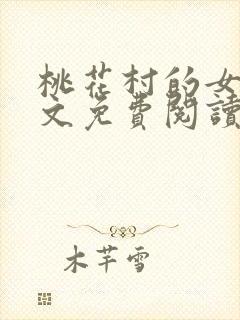 桃花村的女
文免費閱讀
木芊雪